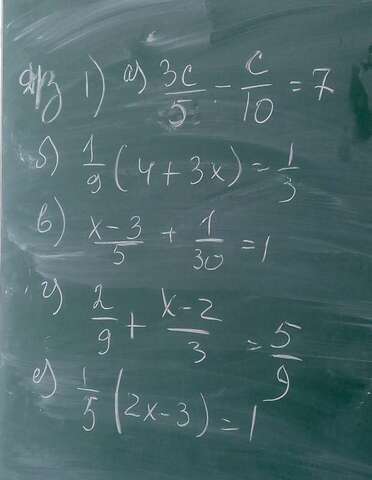 Д/з 1) а) 3c/5 - c/10 = 7
б) 1/9 (4 + 3x) = 1/3
в) x-3/5 + 1/30 = 1
г) 2/9 + x-2/3 = 5/9
е) 1/5 (2x-3) = 1